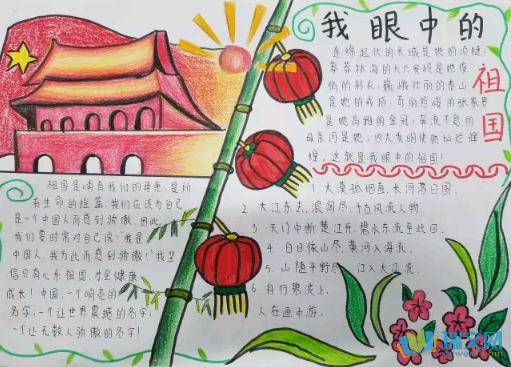 我眼中的
祖国
连绵起伏的长城是她的项链;
莽莽林海的大兴安岭是她俊
俏的彩衣;巍峨壮丽的泰山
是她的戒指;奇丽险峰的张家界
是她高雅的金冠;奔流不息的
母亲河是她
这就是我眼中的祖国!
1 大漠孤烟直,长河落日圆.
2. 大江东去,浪淘尽,千古风流人物.
3. 天门中断楚江开,碧水东流至此回.
4. 白日依山尽,黄河入海流.
5. 山随平野尽,江入大荒流.
6. 舟行碧波上,
人在画中游.
祖国是哺育我们的母亲,是所
有生命的摇篮,我们应该为自己
是一个中国人而感到骄傲.因此,
我们要时常对自己说:"我是
中国人,我为此而感到骄傲!"我坚
信只有心系祖国,才会健康
成长!中国,一个响亮的
名字;一个让世界震撼的名字;
一个让无数人骄傲的名字!
瑞文网